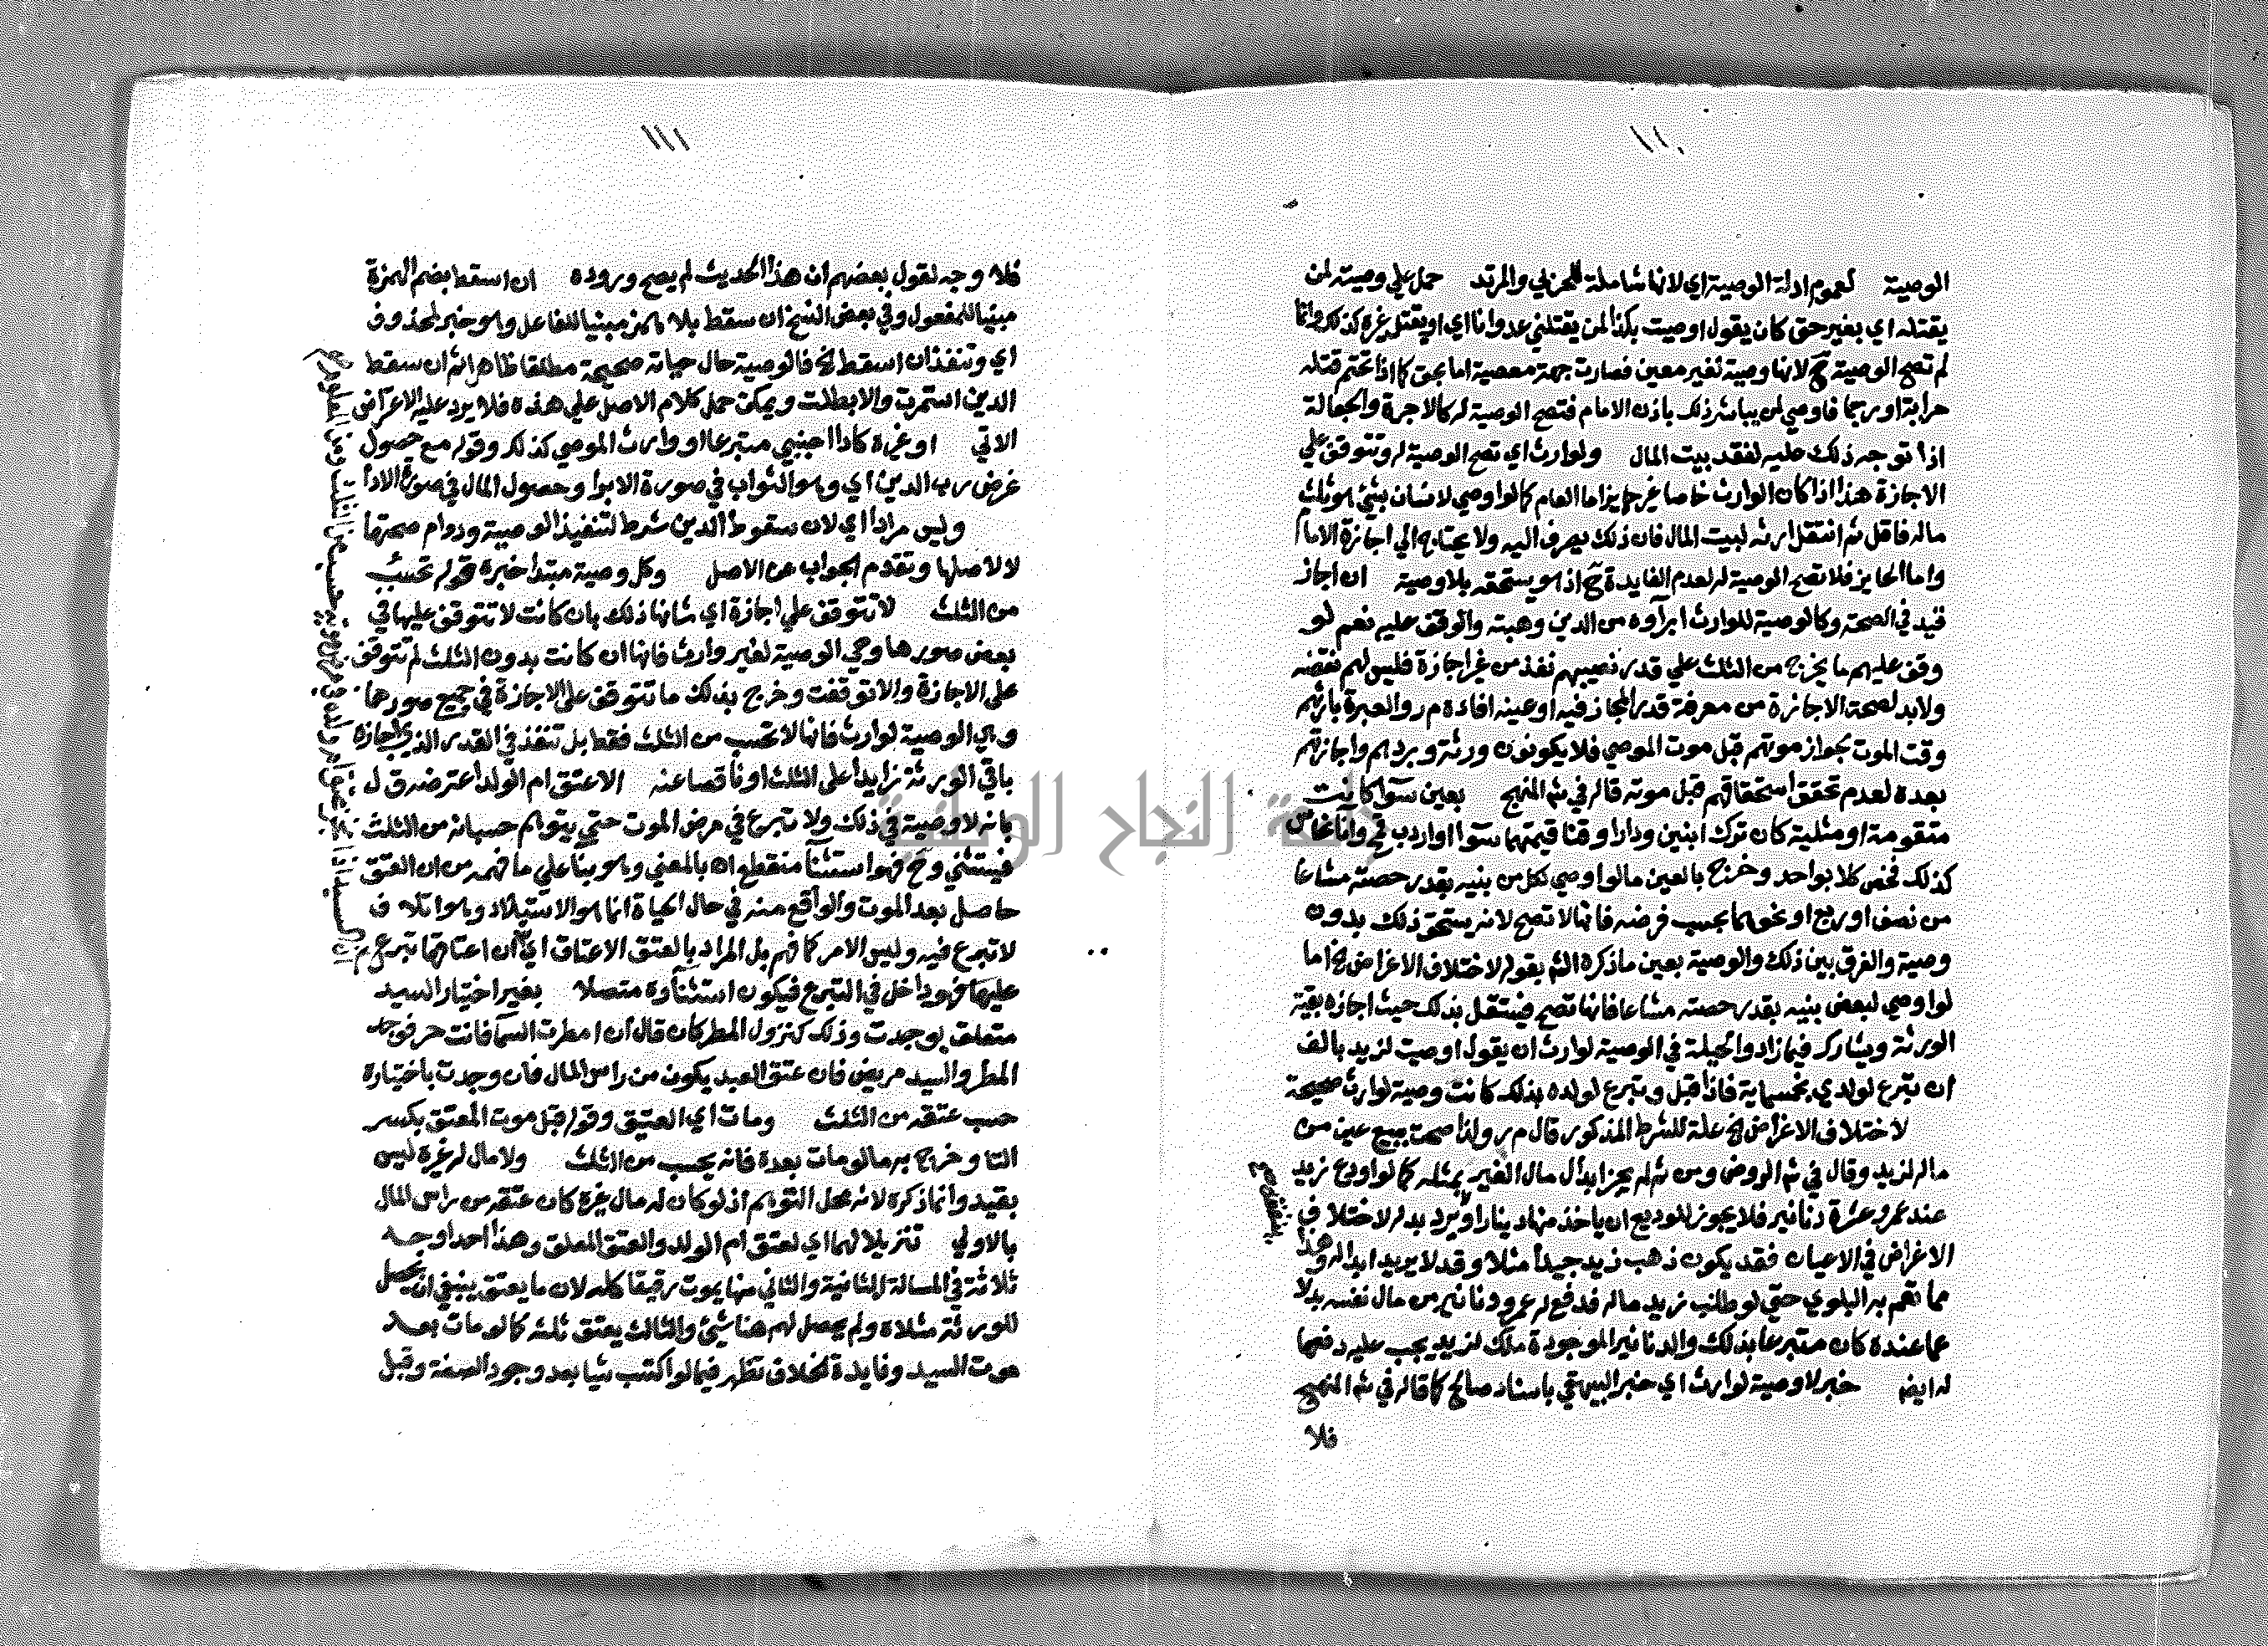 ١١٠
الوصية لعموم ادلة الوصية اي لانها شاملة للحربي والمرتد حمل علي وصيته لمن
يقتله اي بغير حق كان يقول اوصيت بكذا لمن يقتلني عدوانا اي او يقتل غيره كذلك وانما
لم تصح الوصية ح لانها وصية لغير معين فصارت جهة معصية اما بحق كما اذا تحتم قتله
حرابة او رجما فاوصي لمن يباشر ذلك باذن الامام فتصح الوصية له كالاجرة والجعالة
اذا توجه ذلك عليه لفقد بيت المال ولوارث اي تصح الوصية له وتتوقف علي
الاجازة هذا اذا كان الوارث خاصا غير حايز اما العام كما لو اوصي لانسان بشئ هو ثلث
ماله فاقل ثم انتقل ارثه لبيت المال فان ذلك يصرف اليه ولا يحتاج الي اجازة الامام
واما الحايز فلا تصح الوصية له لعدم الفايدة ح اذ هو يستحقه بلا وصية ان اجاز
قيد في الصحة وكالوصية للوارث ابرآوه من الدين وهبته والوقف عليه نعم لو
وقف عليهم ما يخرج من الثلث علي قدر نصيبهم نفذ من غير اجازة فليس لهم نقضه
ولابد لصحة الاجازة من معرفة قدر المجاز فيه او عينه افاده م ر والعبرة بارثهم
وقت الموت بجواز موتهم قبل موت الموصي فلا يكونون ورثة وبردهم واجازتهم
بعده لعدم تحقق استحقاقهم قبل موته قاله في شم المنهج بعين سوا كانت
متقومة او مثلية كان ترك ابنين ودارا وقنا قيمتهما سوا او اردب قمح
كذلك فخص كلا بواحد وخرج بالعين ما لو اوصي لكل من بنيه بقدر حصته مشاعا
من نصف او ربع او نحوهما بحسب فرضه فانها لا تصح لانه يستحق ذلك بدون
وصية والفرق بين ذلك والوصية بعين ما ذكره الشم بقوله لاختلاف الاغراض الخ اما
لو اوصي لبعض بنيه بقدر حصته مشاعا فانها تصح فينتقل بذلك حيث اجازه بقية
الورثة ويشارك فيما زاد والحيلة في الوصية لوارث ان يقول اوصيت لزيد بالف
ان تبرع لولدي بخمسماية فاذا قبل وتبرع لولده بذلك كانت وصية لوارث صحيحة
لاختلاف الاغراض الخ علة للشرط المذكور قال م ر ولذا صحت ببيع عين من
ماله لزيد وقال في شم الروض ومن ثم لم يجز ابدال مال الغير بمثله كما لو اودع زيد
عند عمرو عشرة دنانير فلا يجوز للوديع ان ياخذ منها دينارا ويرد بدله لاختلاف
الاغراض في الاعيان فقد يكون ذهب زيد جيدا مثلا وقد لا يريد ابداله وهذا
مما تعم به البلوي حتي لو طلب زيد ماله فدفع له عمرو دنانير من مال نفسه بدلا
عما عنده كان متبرعا بذلك والدنانير الموجودة ملك لزيد يجب عليه دفعها
له ايضم خبر لا وصية لوارث اي خبر البيهقي باسناد صالح كما قاله في شم المنهج
فلا
١١١
فلا وجه لقول بعضهم ان هذا الحديث لم يصح وروده ان اسقط بضم الهمزة
مبنيا للمفعول وفي بعض النسخ ان سقط بلا همز مبنيا للفاعل وهو خبر لمحذوف
اي وتنفذ ان اسقط الخ فالوصية حال حياته صحيحة مطلقا ظاهرا ثم ان سقط
الدين استمرت والا بطلت ويمكن حمل كلام الاصل علي هذه فلا يرد عليه الاعتراض
الاتي او غيره كاداا جنبي متبرعا او وارث الموصي كذلك وقوله مع حصول
غرض رب الدين اي وهو الثواب في صورة الابرا وحصول المال في صورة الادا
وليس مرادا اي لان سقوط الدين شرط لتنفيذ الوصية ودوام صحتها
لا لاصلها وتقدم الجواب عن الاصل وكل وصية مبتدا خبره قوله تحسب
من الثلث لا تتوقف علي اجازة اي شانها ذلك بان كانت لا تتوقف عليها في
بعض صورها وهي الوصية لغير وارث فانها ان كانت بدون الثلث لم تتوقف
علي الاجازة والا توقفت وخرج بذلك ما تتوقف علي الاجازة في جميع صورها
وهي الوصية لوارث فانها لا تحسب من الثلث فقط بل تنفذ في القدر الذي اجازه
باقي الورثة زايدا علي الثلث او ناقصا عنه الا عتق ام الولد اعترضه ق ل
بانه لا وصية في ذلك ولا تبرع في مرض الموت حتي يتوهم حسبانه من الثلث
فيستثني وح فهو استثنآ منقطع اه بالمعني وهو بنا علي ما فهمه من ان العتق
حاصل بعد الموت والواقع منه في حال الحياة انما هو الاستيلاد وهو اتلاف
لا تبرع فيه وليس الامر كما فهم بل المراد بالعتق الاعتاق اي ان اعتاقها تبرع
عليها فهو داخل في التبرع فيكون استثنآوه متصلا بغير اختيار السيد
متعلق بوجدت وذلك كنزول المطر كان قال ان امطرت السما فانت حر فوجد
المطر والسيد مريض فان عتق العبد يكون من راس المال فان وجدت باختياره
حسب عتقه من الثلث ومات اي العتيق وقوله قبل موت المعتق بكسر
التا وخرج به ما لو مات بعده فانه يحسب من الثلث ولا مال له غيره ليس
بقيد وانما ذكره لانه محل التوهم اذ لو كان له مال غيره كان عتقه من راس المال
بالاولي تنزيلا لهما اي لعتق ام الولد والعتق المعلق وهذا احد اوجه
ثلاثة في المسالة الثانية والثاني منها يموت رقيقا كله لان ما يعتق ينبغي ان يحصل
للورثة مثلاه ولم يحصل لهم هنا شئ والثالث يعتق ثلثه كما لو مات بعد
موت السيد وفايدة الخلاف تظهر فيما لو اكتسب شيا بعد وجود الصفة وقبل
جامعة النجاح الوطنية